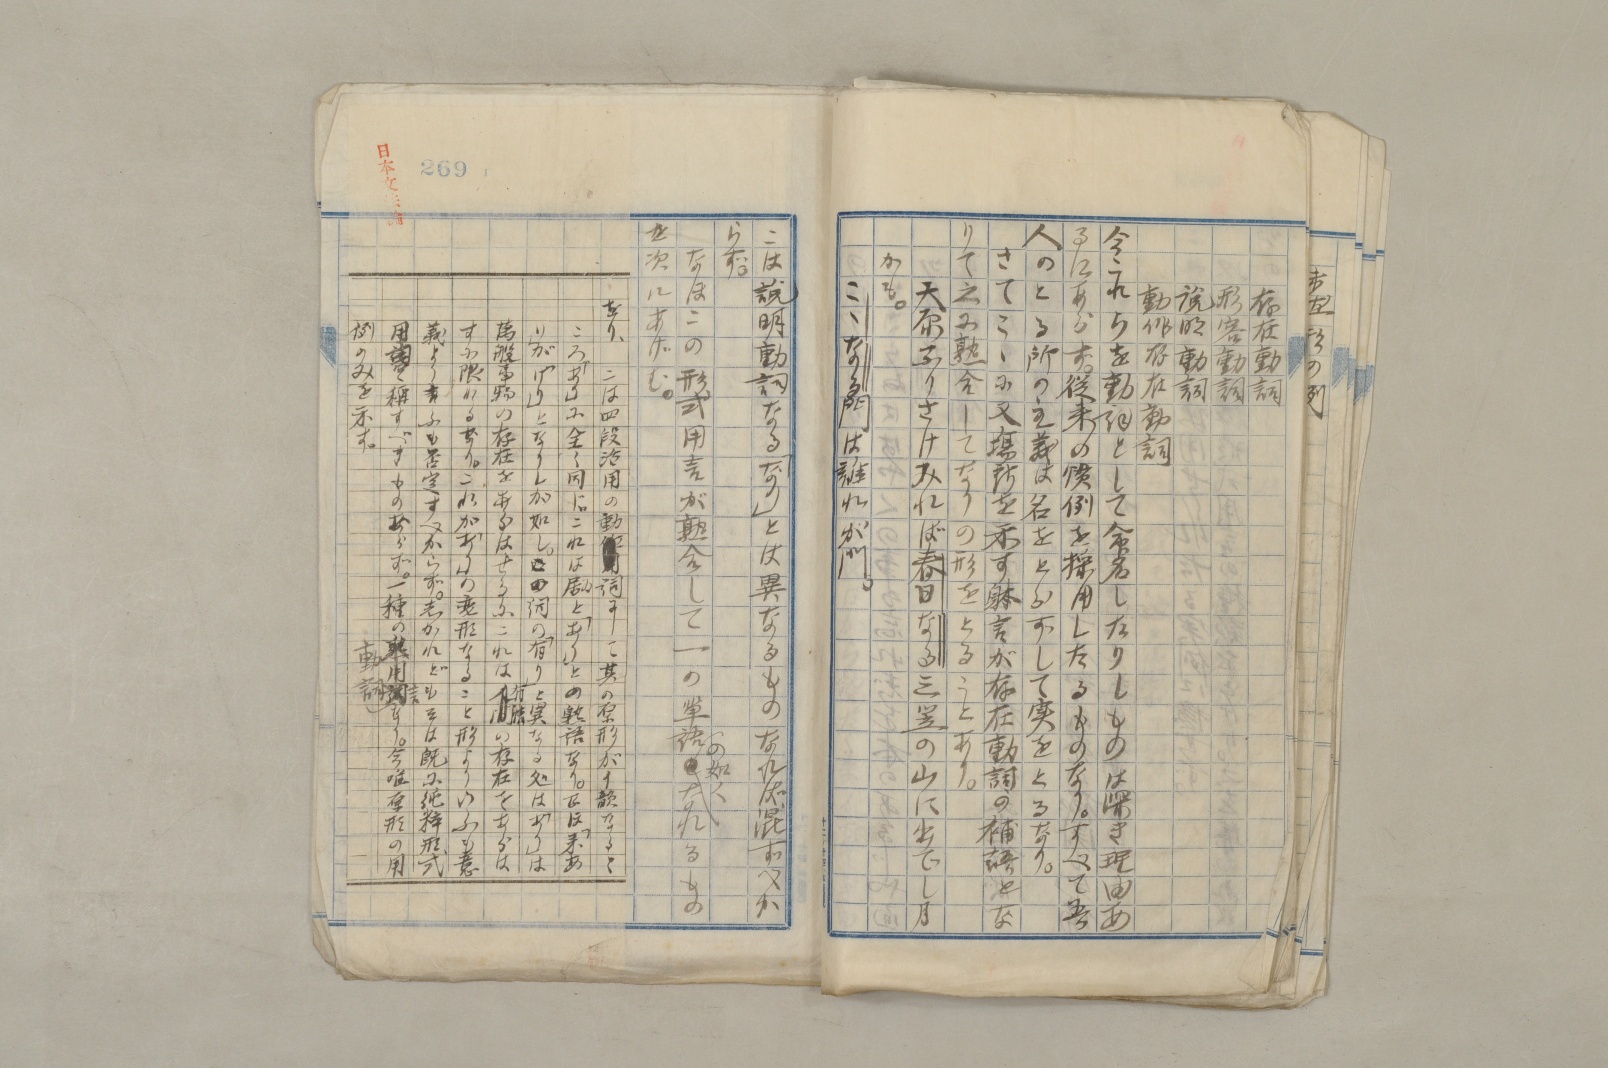 存在動詞
形容動詞
説明動詞
動作存在動詞
今これらを動詞として命名したりしものは深き理由あ
るにあらず。従来の慣例を採用したるものなり。すべて吾
人のとる所の主義は名をとらずして実をとるなり。
さてこゝに又場所を示す躰言が存在動詞の補語とな
りて云々熟合してなりの形をとることあり。
天原ふりさけみれば春日なる三笠の山に出でし月
かも。
こゝなる門は誰れが門。
日本文法論
269
こは説明動詞なる「なり」とは異なるものなれば混ずべか
らず。
なほこの形式用言が熟合して一の単語の如くなれるもの
を次にあげむ。
あり、こは四段活用の動詞にして其の原形がイ韻なると
ころ「あり」に全く同じ。これは居と「あり」との熟語なり。なほ「来あ
り」が「けり」となりしが如し。この詞の「有り」と異なる処は「あり」は
萬般事物の存在をあらはせるにこれは有情の存在をあらは
すに限れるなり。これが「あり」の変形なること形よりいふも意
義より言ふも否定すべからず。しかれどもそは既に純粋形式
用言と称すべきものあらず。一種の用言なり。今唯原形の用
例のみを示す。
動詞